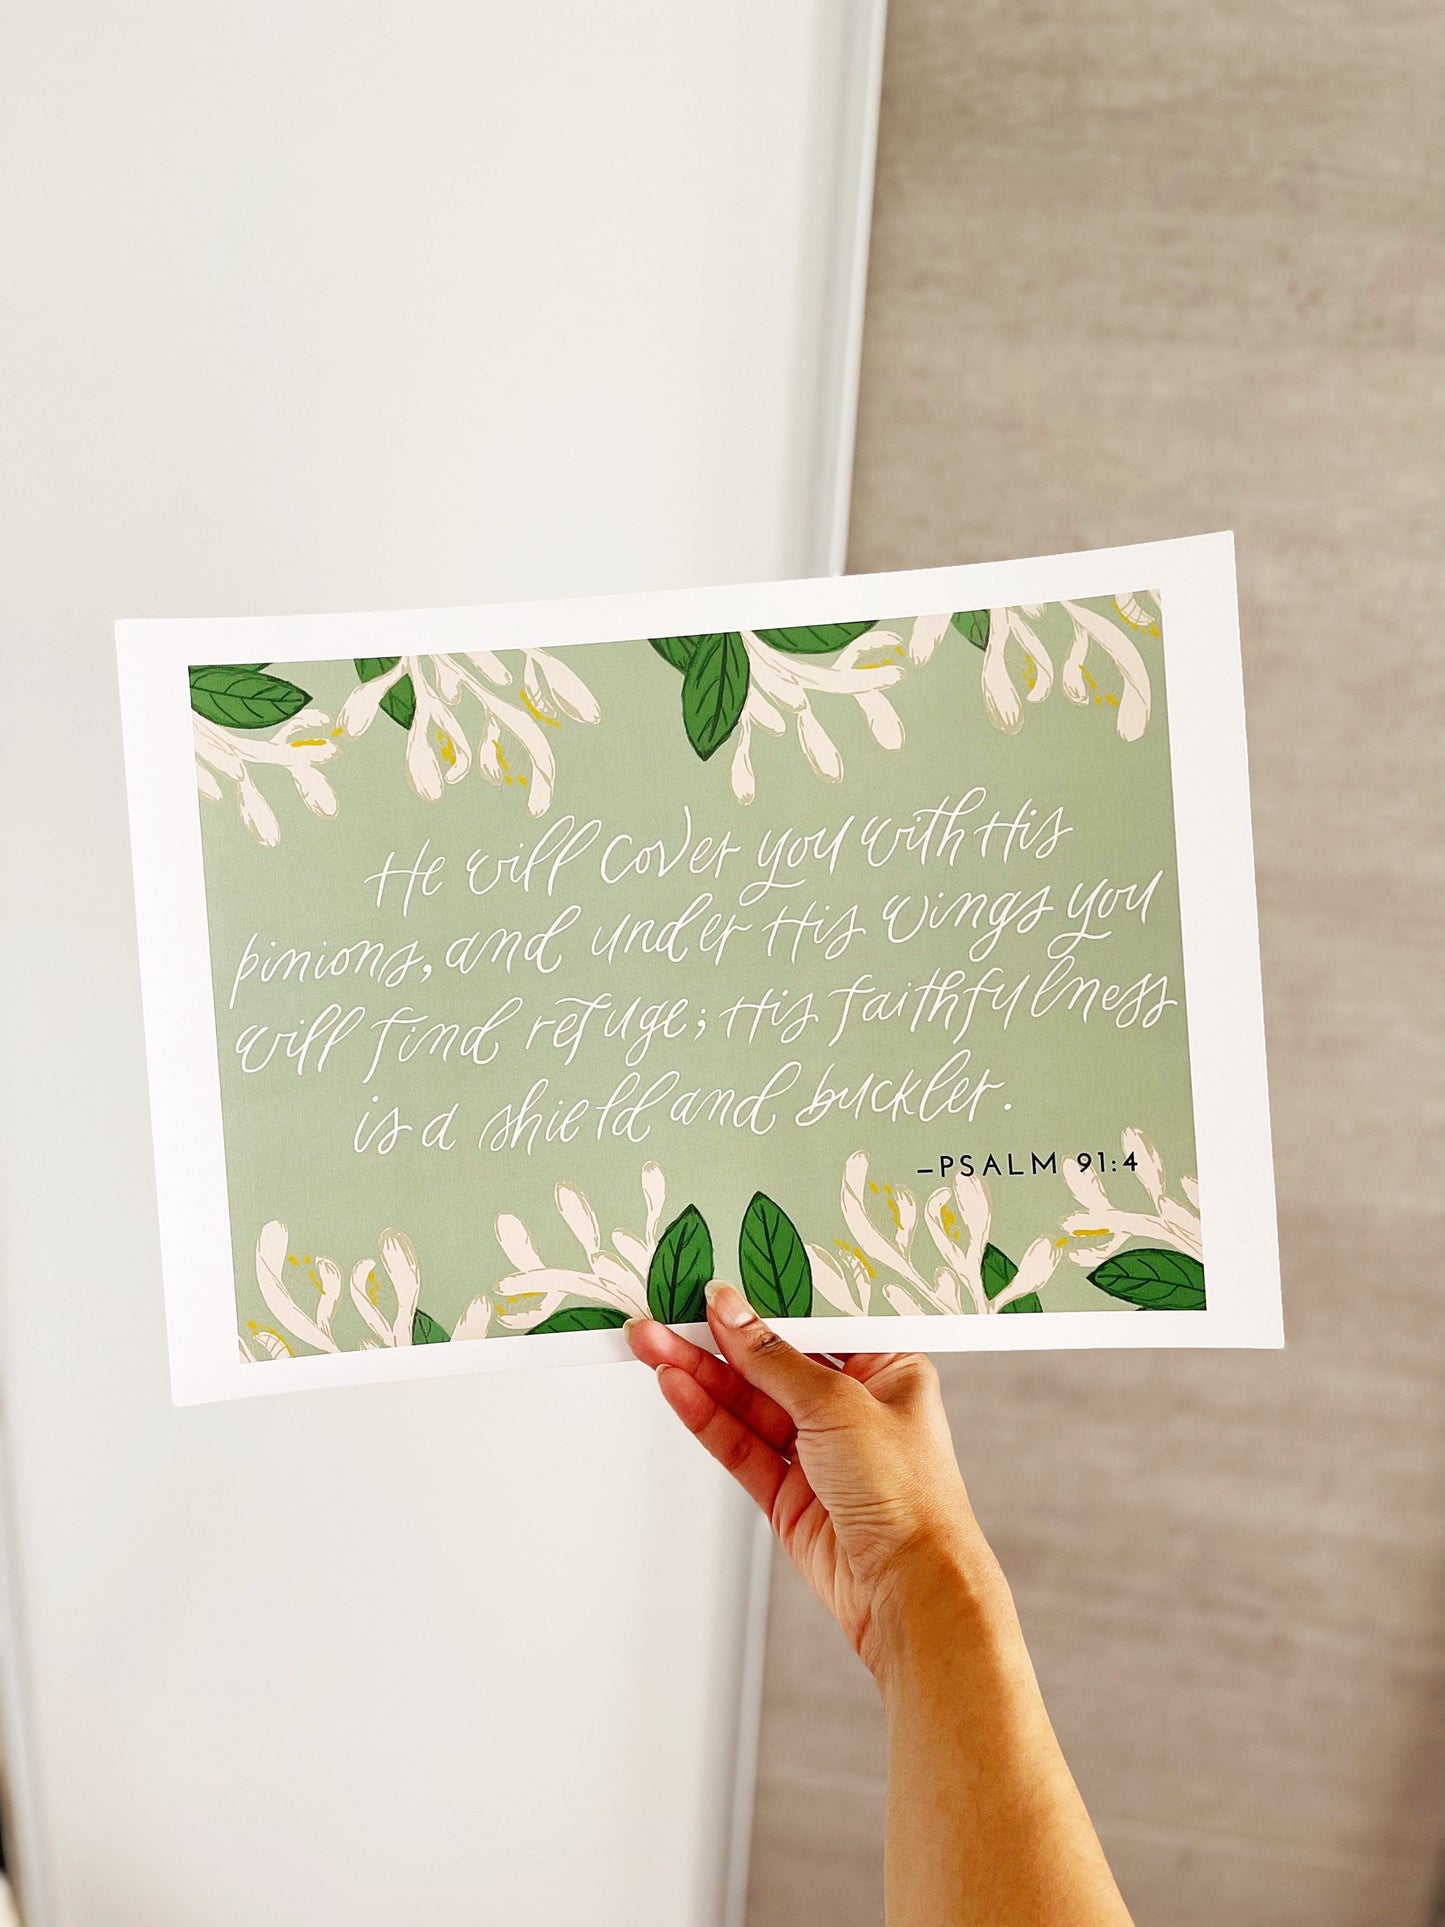 He will cover you with His
pinions, and under His wings you
will find refuge; His faithfulness
is a shield and buckler.
–PSALM 91:4